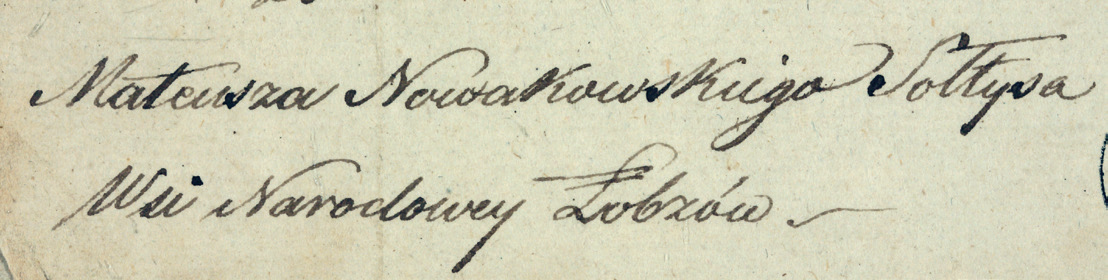 Mateusza Nowakowskiego Sołtysa
Wsi Narodowey Łobzów